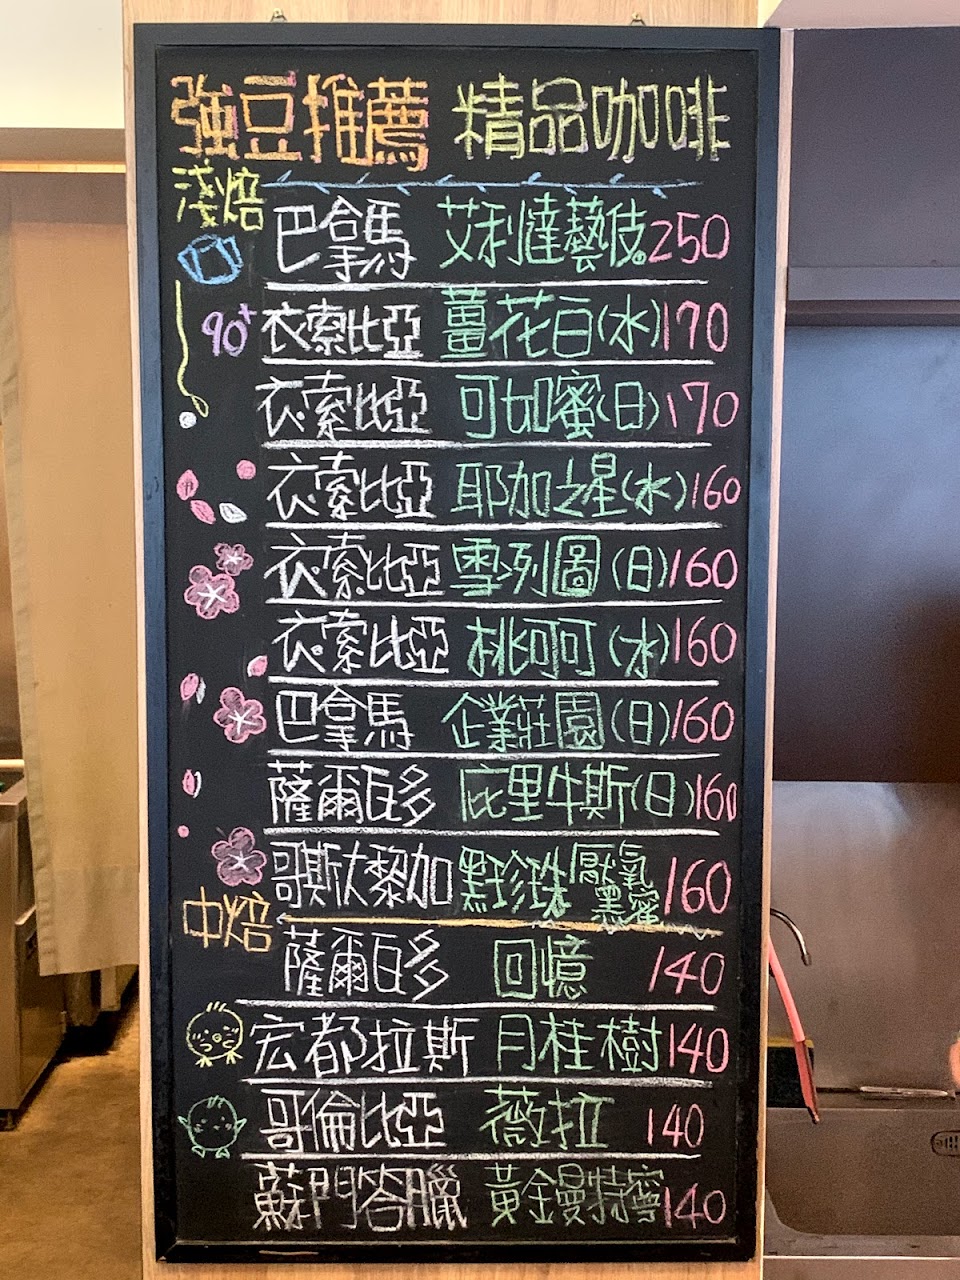 強豆推薦 精品咖啡
淺焙
巴拿馬 艾利達藝伎 250
90+ 衣索比亞 薑花白(水) 170
衣索比亞 可如蜜(日) 170
衣索比亞 耶加之星(水) 160
衣索比亞 雪冽圖(日) 160
衣索比亞 桃可可(水) 160
巴拿馬 企業莊園(日) 160
薩爾瓦多 庇里牛斯(日) 160
哥斯大黎加 黑珍珠 厭氧黑蜜 160
中焙
薩爾瓦多 回憶 140
宏都拉斯 月桂樹 140
哥倫比亞 薇拉 140
蘇門答臘 黃金曼特寧 140